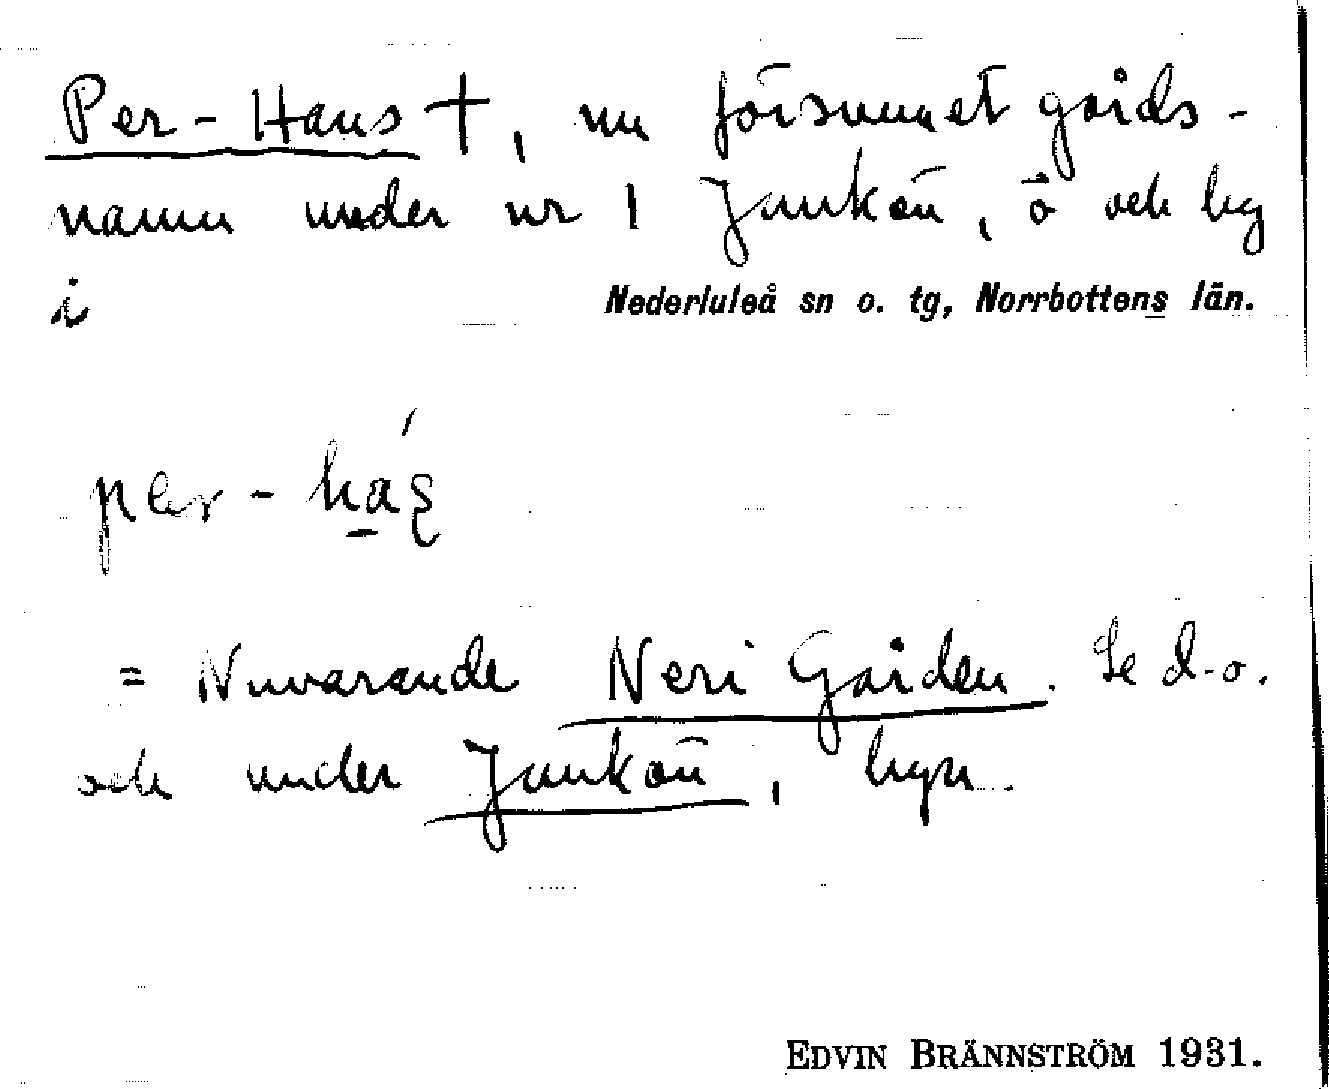 Per-Hans †, nu försvunnet gårds-
namn under nr 1 Junkön, ö och by
i Nederluleå sn o. tg, Norrbottens län.
per-há
= Nuvarande Neri Gården. Se d.o.
och under Junkön, byn.
EDVIN BRÄNNSTRÖM 1931.